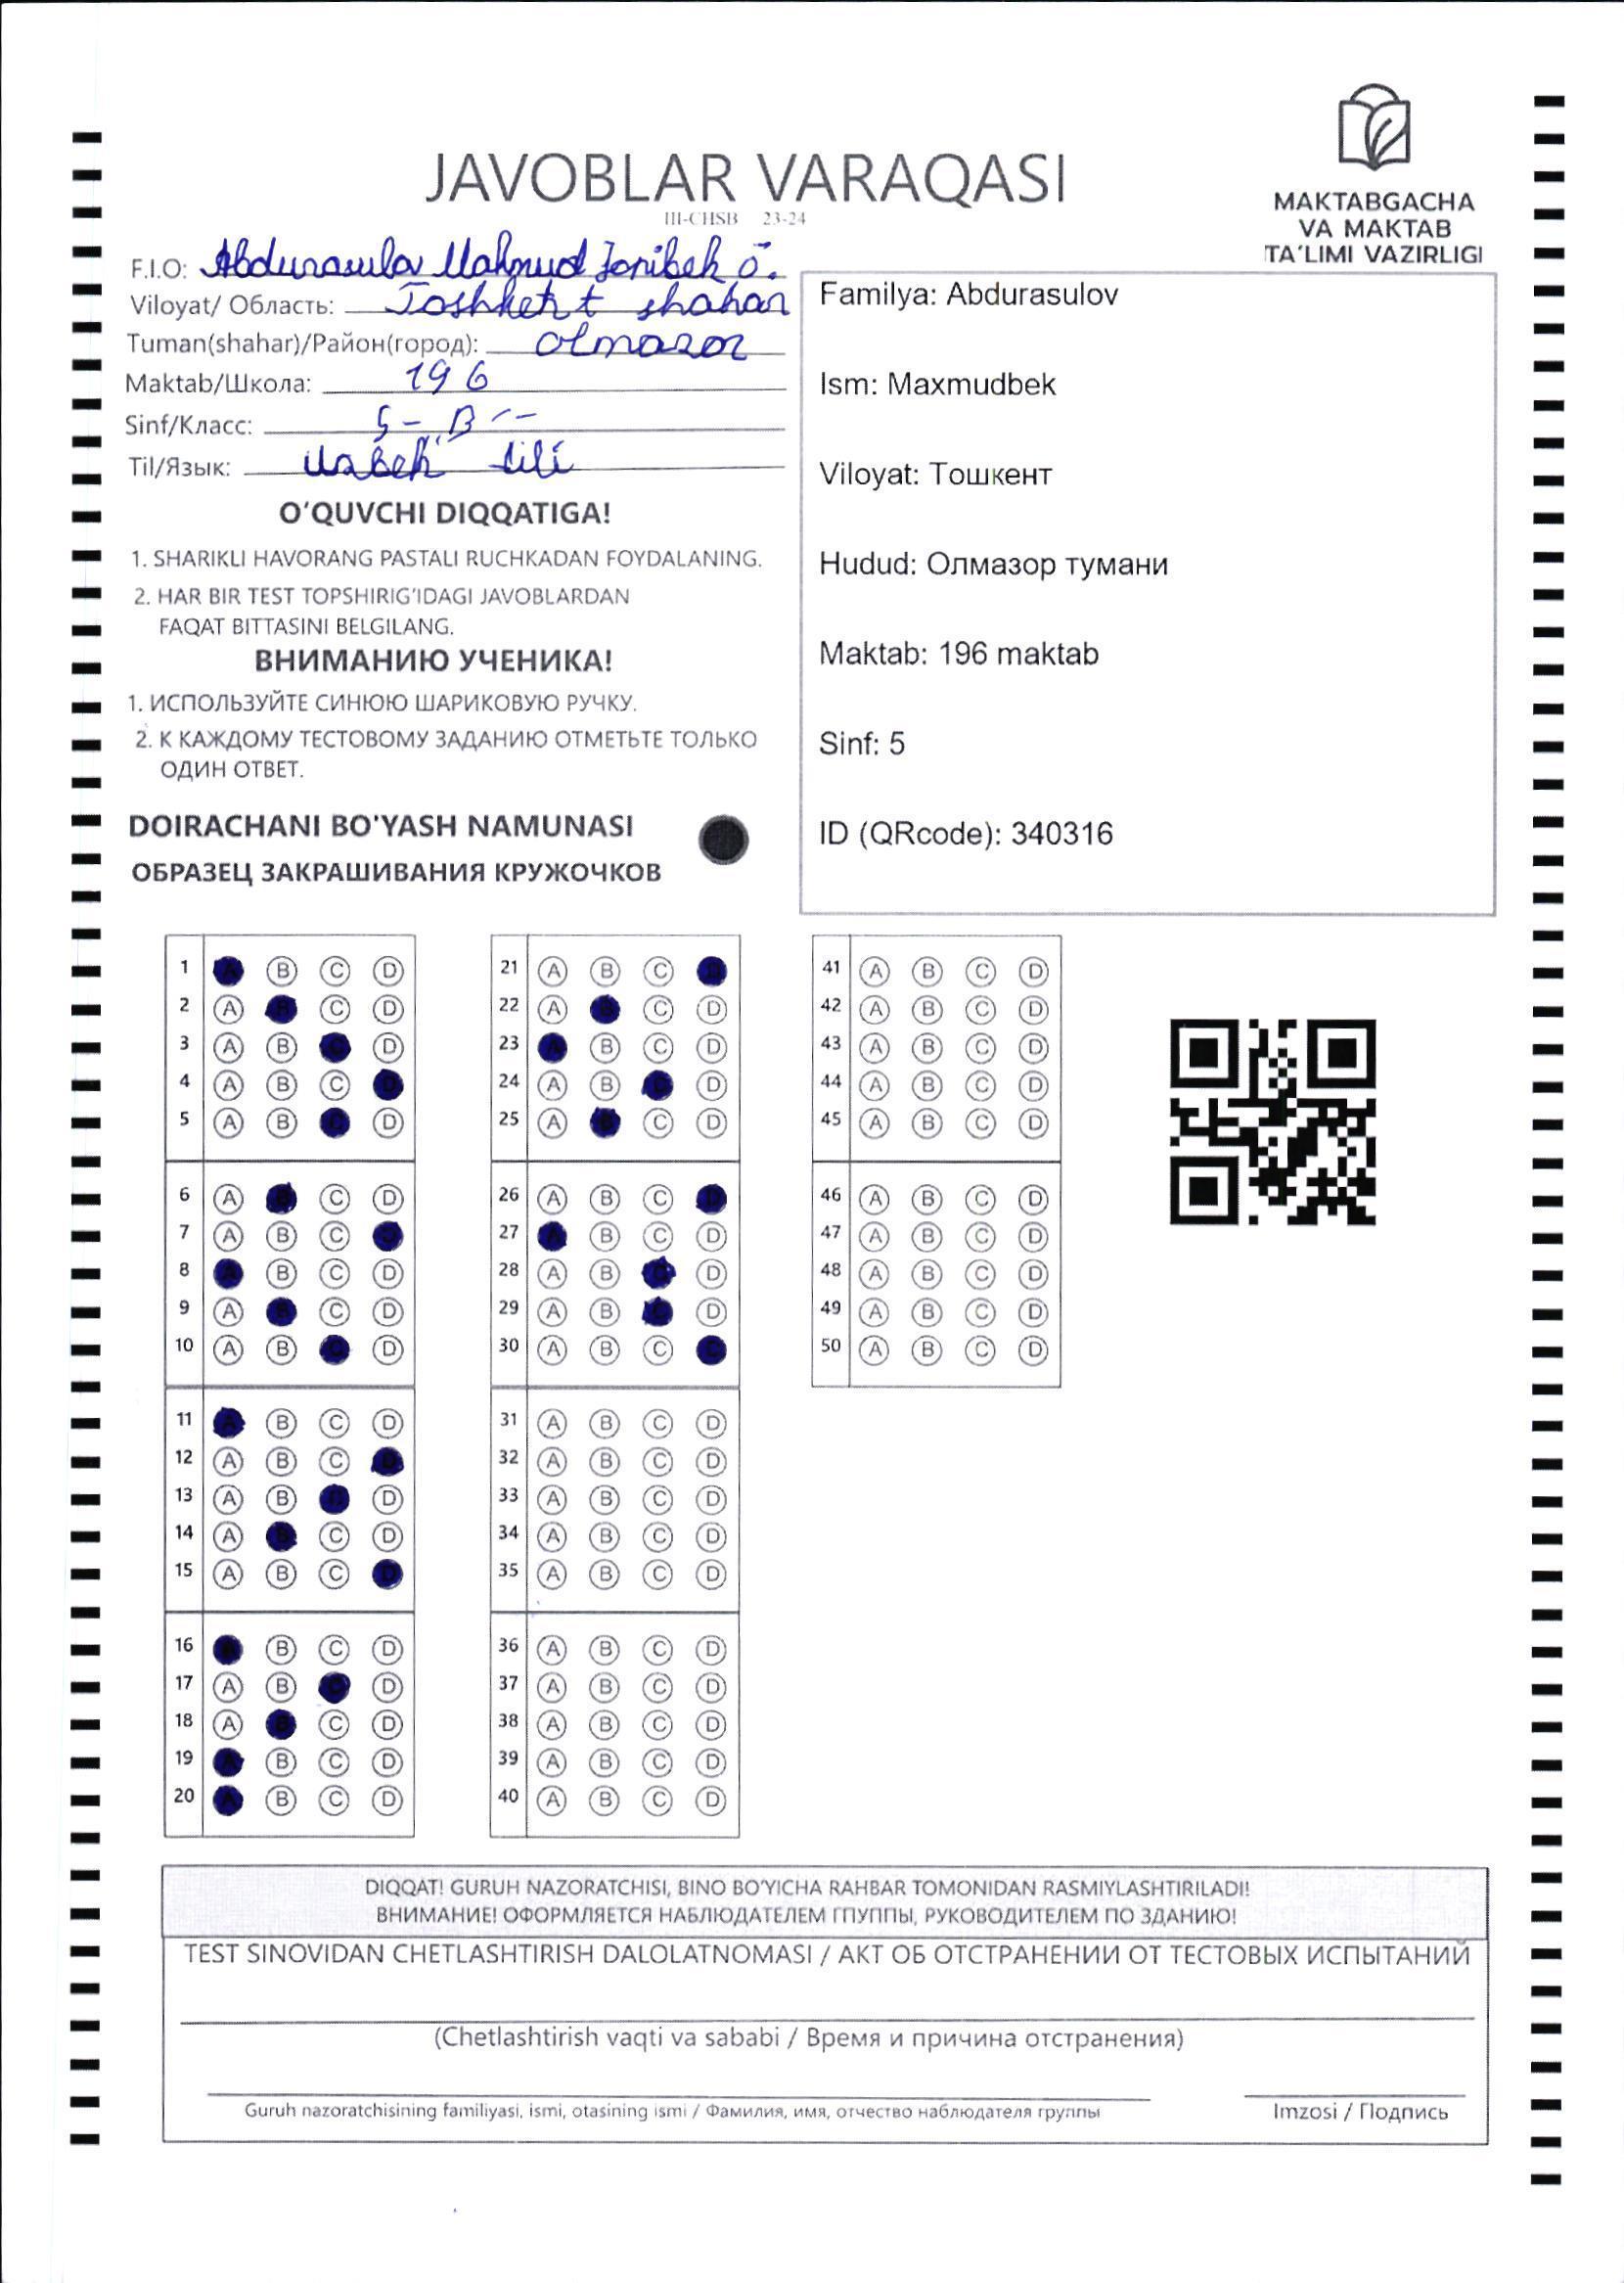 JAVOBLAR VARAQASI
III-CHSB 23-24
MAKTABGACHA
VA MAKTAB
TA'LIMI VAZIRLIGI
F.I.O: Abdurasulov Mahmud Jonibek o'.
Viloyat/ Область: Toshkent shahar
Tuman(shahar)/Район(город): Olmazor
Maktab/Школа: 196
Sinf/Класс: 5-"B"-
Til/Язык: Uzbek tili
O'QUVCHI DIQQATIGA!
1. SHARIKLI HAVORANG PASTALI RUCHKADAN FOYDALANING.
2. HAR BIR TEST TOPSHIRIG'IDAGI JAVOBLARDAN
FAQAT BITTASINI BELGILANG.
ВНИМАНИЮ УЧЕНИКА!
1. ИСПОЛЬЗУЙТЕ СИНЮЮ ШАРИКОВУЮ РУЧКУ.
2. К КАЖДОМУ ТЕСТОВОМУ ЗАДАНИЮ ОТМЕТЬТЕ ТОЛЬКО
ОДИН ОТВЕТ.
DOIRACHANI BO'YASH NAMUNASI
ОБРАЗЕЦ ЗАКРАШИВАНИЯ КРУЖОЧКОВ
Familya: Abdurasulov
Ism: Maxmudbek
Viloyat: Тошкент
Hudud: Олмазор тумани
Maktab: 196 maktab
Sinf: 5
ID (QRcode): 340316
1 A B C D
2 A B C D
3 A B C D
4 A B C D
5 A B C D
6 A B C D
7 A B C D
8 A B C D
9 A B C D
10 A B C D
11 A B C D
12 A B C D
13 A B C D
14 A B C D
15 A B C D
16 A B C D
17 A B C D
18 A B C D
19 A B C D
20 A B C D
21 A B C D
22 A B C D
23 A B C D
24 A B C D
25 A B C D
26 A B C D
27 A B C D
28 A B C D
29 A B C D
30 A B C D
31 A B C D
32 A B C D
33 A B C D
34 A B C D
35 A B C D
36 A B C D
37 A B C D
38 A B C D
39 A B C D
40 A B C D
41 A B C D
42 A B C D
43 A B C D
44 A B C D
45 A B C D
46 A B C D
47 A B C D
48 A B C D
49 A B C D
50 A B C D
DIQQAT! GURUH NAZORATCHISI, BINO BO'YICHA RAHBAR TOMONIDAN RASMIYLASHTIRILADI!
ВНИМАНИЕ! ОФОРМЛЯЕТСЯ НАБЛЮДАТЕЛЕМ ГПУППЫ, РУКОВОДИТЕЛЕМ ПО ЗДАНИЮ!
TEST SINOVIDAN CHETLASHTIRISH DALOLATNOMASI / АКТ ОБ ОТСТРАНЕНИИ ОТ ТЕСТОВЫХ ИСПЫТАНИЙ
(Chetlashtirish vaqti va sababi / Время и причина отстранения)
Guruh nazoratchisining familiyasi, ismi, otasining ismi / Фамилия, имя, отчество наблюдателя группы
Imzosi / Подпись